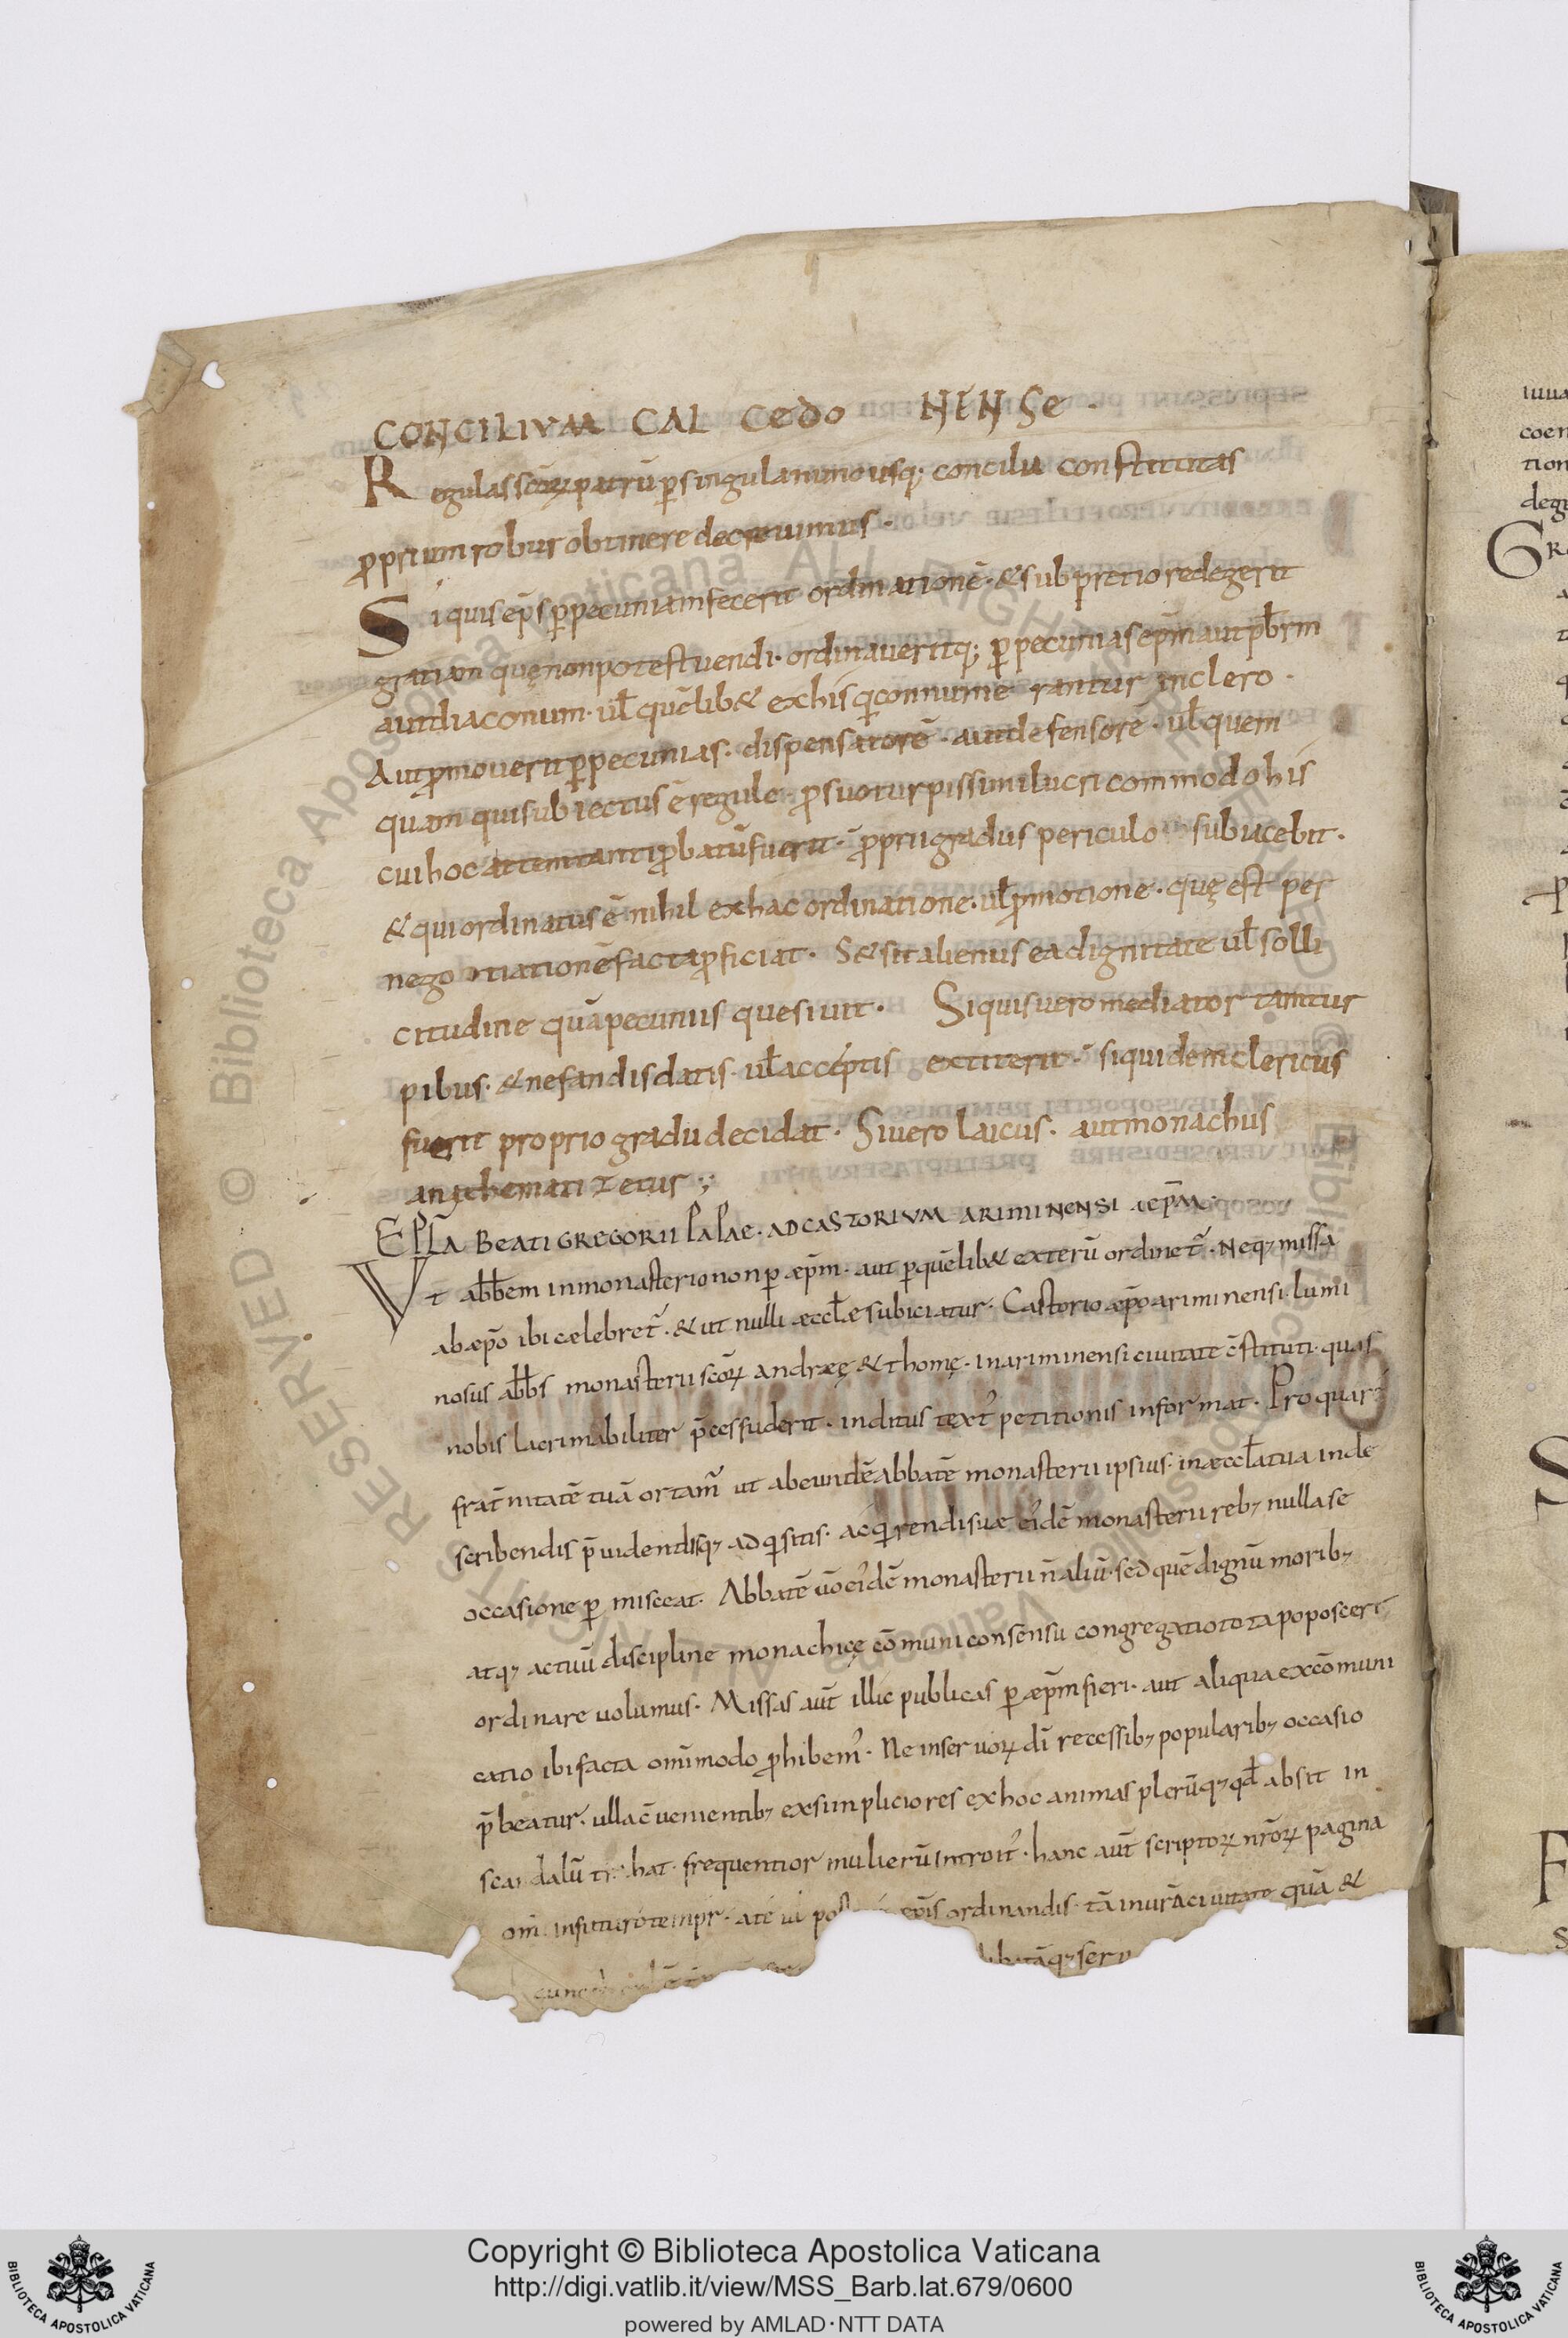 CONCILIVM CALCEDONENSE.
Regulas scōꝝ patrū ꝑ singula nunc usq; concilia constitutas
ꝓprium robur obtinere decreuimus.
Si quis ep̄s ꝑ pecuniam fecerit ordinationē. & sub pretio redegerit
gratiam quę non potest uendi. ordinaueritq; ꝑ pecunias ep̄m aut pr̄brm
aut diaconum. ul̄ quēlib& ex his qͥ connume rantur in clero.
Aut ꝓmouerit ꝑ pecunias. dispensatorē. aut defensorē. ul̄ quem
quam qui subiectus ē regule. ꝓ suo turpissimi lucri commodo his
cui hoc attemtanti ꝓbatū fuerit. ꝓprii gradus periculo subiacebit.
& qui ordinatus ē nihil ex hac ordinatione. ul̄ ꝓmotione. quę est per
nego tiationē facta ꝓficiat. S& sit alienus ea dignitate ul̄ solli
citudine quā pecuniis quesiuit. Si quis uero mediator tam tur
pibus. & nefandis datis. ul̄ acceptis extiterit. siquidem clericus
fuerit proprio gradu decidat. Si uero laicus. aut monachus
anathematizetur;
EPL̄A BEATI GREGORII PAPAE. AD CASTORIVM ARIMINENSI EP̄M.
Vt abb̄em in monasterio non ꝑ æp̄m. aut ꝑ quēlib& exterū ordinet̄. Neqꝫ missa
ab æp̄o ibi celebret̄. & ut nulli æccl̄æ subiciatur. Castorio æp̄o ariminensi. lumi
nosus abb̄s monasterii scōꝝ andręę & thomę. in ariminensi ciuitate c̄stituti. quas
nobis lacrimabiliter p̄ces fuderit. inditus textꝰ petitionis informat. Pro qua r̄
frat̄nitatē tuā ortam̄ ut abeuntē abbatē monasterii ipsius. in æccl̄a tua inde
scribendis p̄uidendisqꝫ adqͥsitis. acqͥrendisuæ eiꝰdē monasterii rebꝫ nulla se
occasione ꝑmisceat. Abbatē ūo eiꝰdē monasterii n̄ aliū. sed quē dignū moribꝫ
atqꝫ actuū discipline monachicę cōmuni consensu congregatio tota poposcerit
ordinare uolumus. Missas aut̄ illic publicas ꝑ æp̄m fieri. aut aliqua excōmuni
catio ibi facta omīmodo ꝓhibemꝰ. Ne in seruoꝝ dī recessibꝫ popularibꝫ occasio
p̄beatur. ulla c̄uenientibꝫ ex simpliciores ex hoc animas plerūqꝫ qd̄ absit in
scandalū trahat. frequentior mulierū introitꝰ. hanc aut̄ scriptoꝝ nr̄oꝝ pagina
om̄ in futuro tempr. ordinandis. tā in ur̄a ciuitate quā &